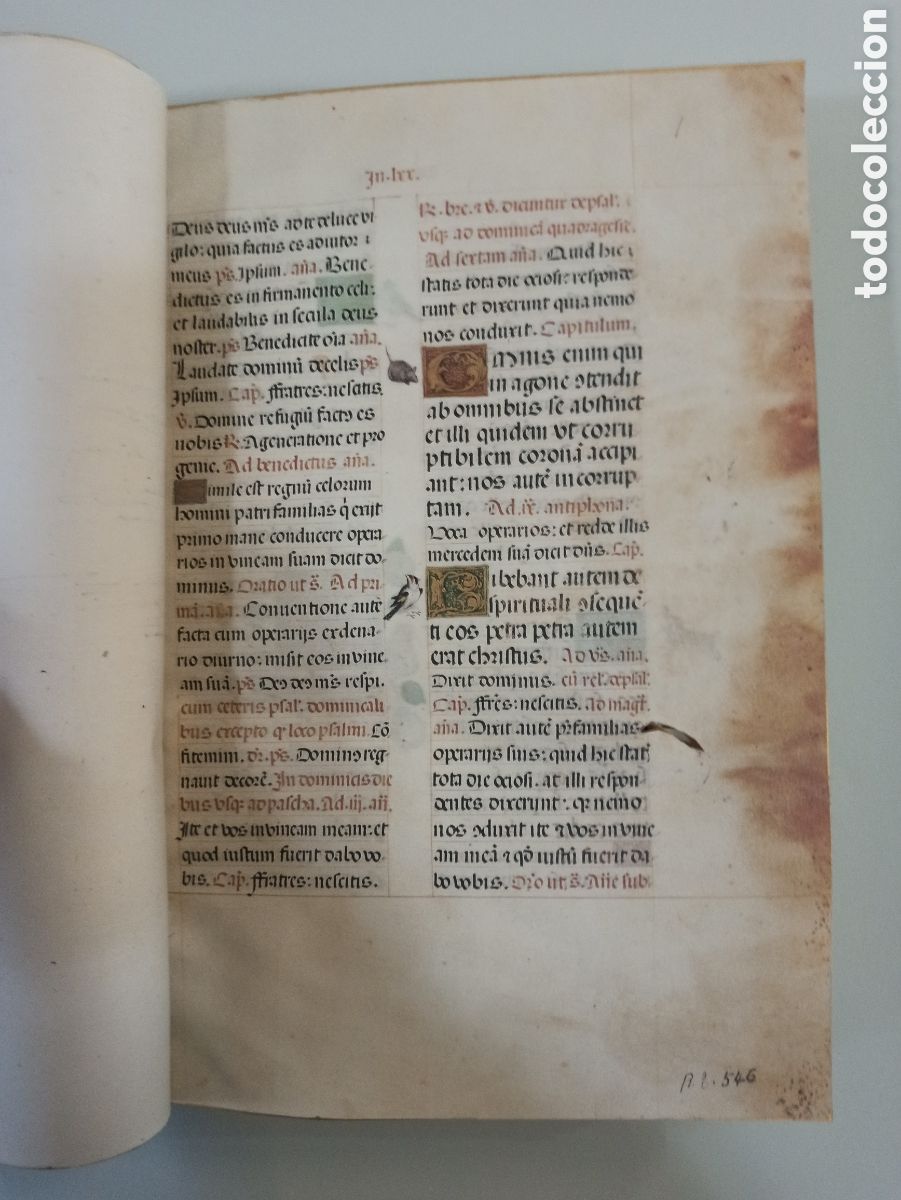 In·lxx.
Deus deus ms̄ ad te de luce vi
gilo: quia factus es adiutor
meus ps̄ Ipsum. an̄a. Bene
dictus es in firmamento celi:
et laudabilis in secula deus
noster. ps̄ Benedicite om̄a an̄a.
Laudate dominū de celis ps̄
Ipsum. Cap̄. Ffratres: nescitis.
v̄. Domine refugiū factꝰ es
nobis R̄. A generatione et pro
genie. Ad benedictus an̄a.
Simile est regnū celorum
homini patri familias q̇ exijt
primo mane conducere opera
rios in vineam suam dicit do
minus. Oratio ut s̄. Ad pri
mā. an̄a. Conventione autē
facta cum operarijs ex dena
rio diurno: misit eos in vine
am suā. ps̄ Deꝰ deꝰ ms̄ respi.
cum ceteris psal. dominicali
bus excepto qꝫ loco psalmi Cō
fitemini. dr̄. ps̄. Dominꝰ reg
navit decorē. In dominicis die
bus vsqꝫ ad pascha. Ad .iij. an̄.
Ite et vos in vineam meam: et
quod iustum fuerit dabo vo
bis. Cap̄. Ffratres: nescitis.
R̄. bre. ⁊ v̄. dicuntur de psal.
vsqꝫ ad dominicā quadragesie.
Ad sextam an̄a. Quid hic
statis tota die ociosi: responde
runt et dixerunt quia nemo
nos conduxit. Capitulum.
Omnis enim qui
in agone ꝯtendit
ab omnibus se abstinet
et illi quidem vt corru
ptibilem coronā accipi
ant: nos autē incorrup
tam. Ad .ix. antiphona.
Voca operarios: et redde illis
mercedem suā dicit dn̄s. Cap̄.
Bibebant autem de
spirituali ꝯsequē
ti eos petra petra autem
erat christus. Ad vs̄. an̄a.
Dixit dominus. cū rel. de psal.
Cap̄. Ffrēs: nescitis. Ad maḡt.
an̄a. Dixit autē pr̄familias
operarijs suis: quid hic statis
tota die ociosi. at illi respon
dentes dixerunt: qꝫ nemo
nos ꝯduxit ite ⁊ vos in vine
am meā ⁊ qd̄ iustū fuerit da
bo vobis. Or̄o ut s̄. An̄e sub
R.E.546
todocoleccion